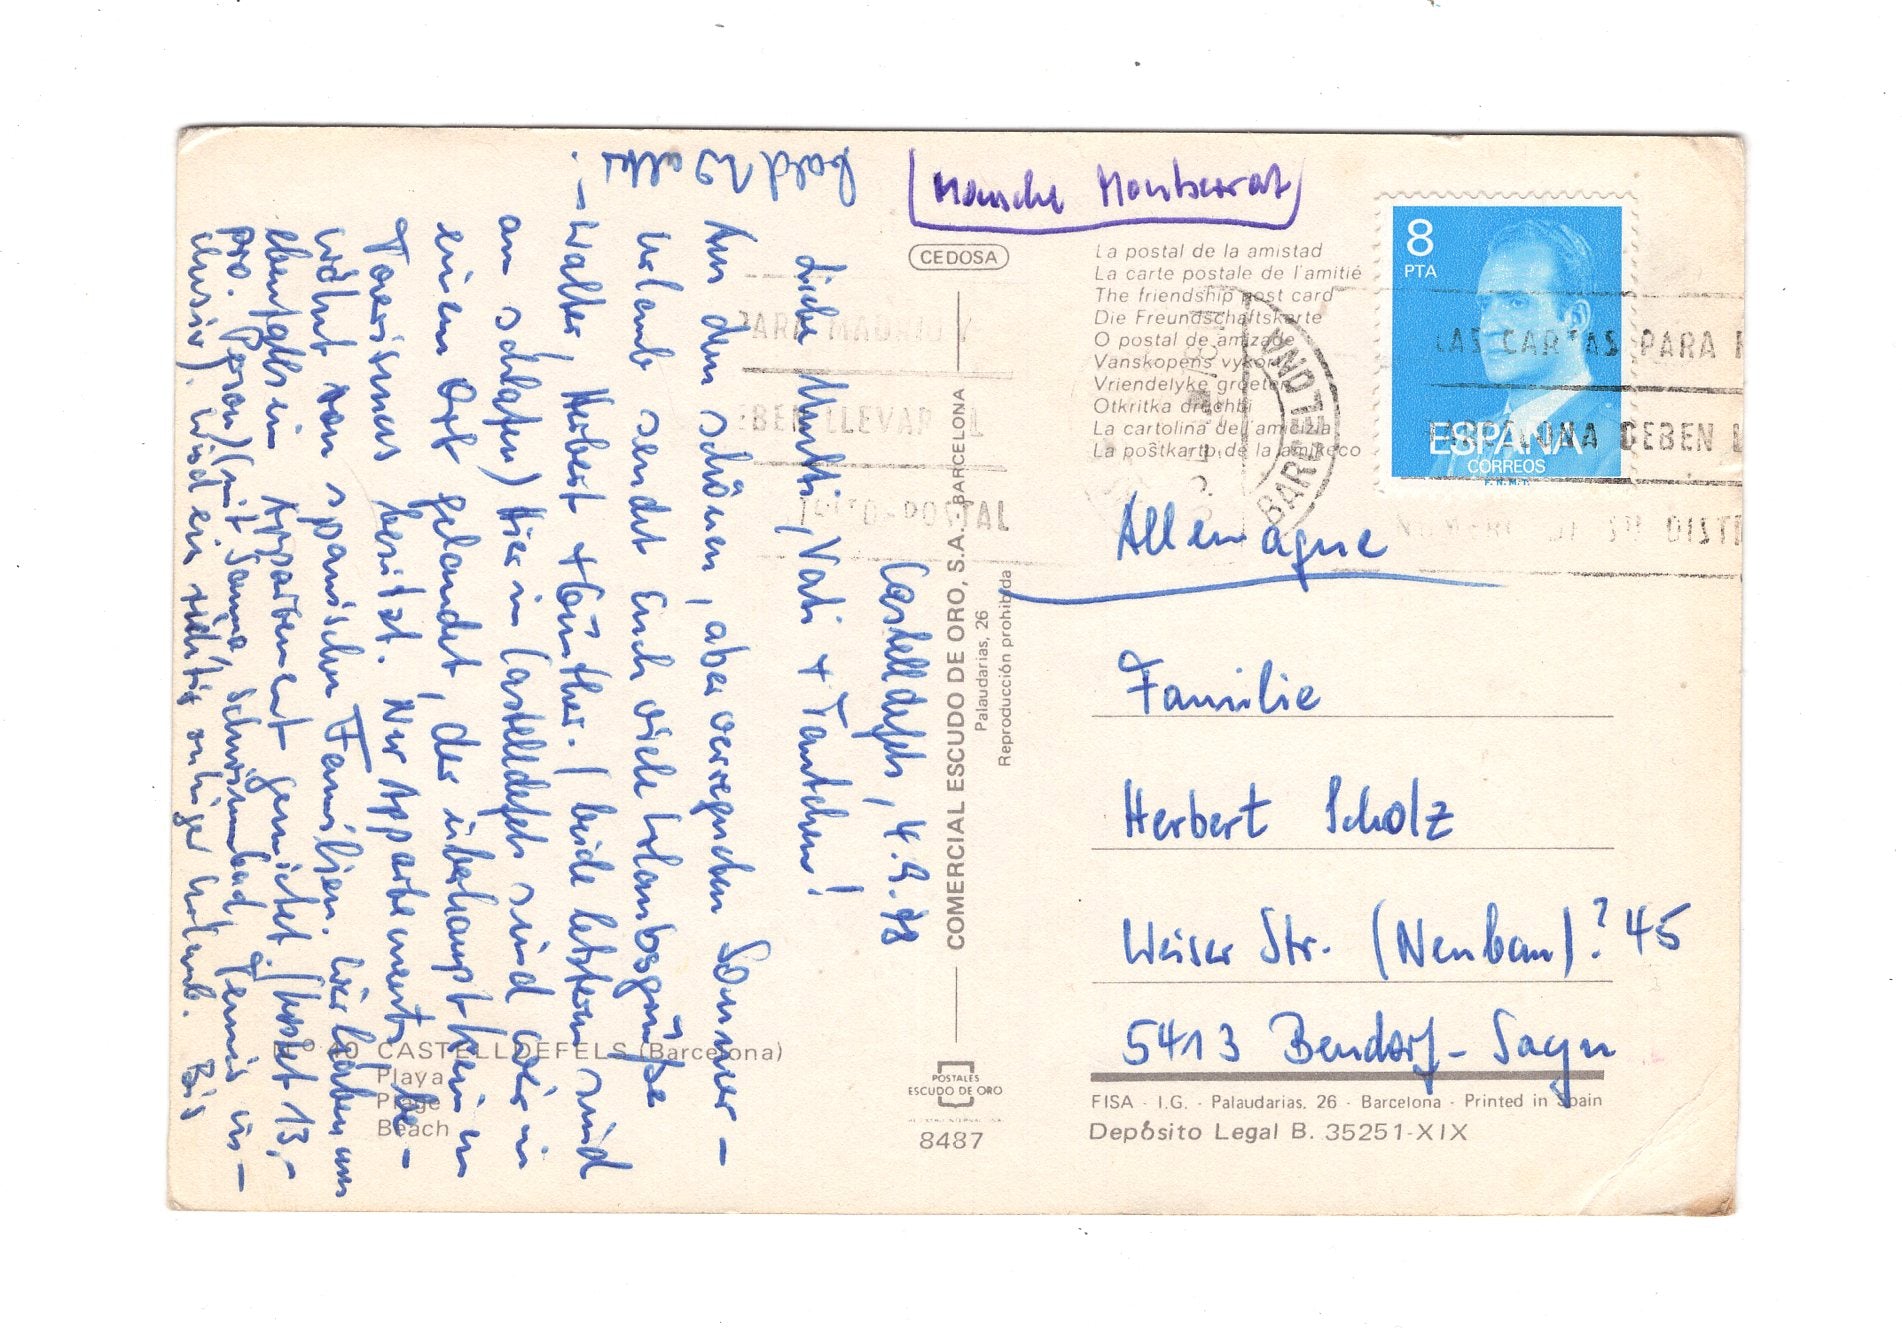 Monsche Montserrat
CEDOSA
La postal de la amistad
La carte postale de l'amitié
The friendship post card
Die Freundschaftskarte
O postal de amizade
Vanskopens vykort
Vriendelyke groeten
Otkritka druchbi
La cartolina dell'amicizia
La poŝtkarto de la amikeco
8
PTA
ESPAÑA
CORREOS
F.N.M.T.
BARCELONA
LAS CARTAS PARA
DEBEN
PARA MADRID Y
DEBEN LLEVAR EL
DISTRITO POSTAL
Castelldefels, 4.9.78
Liebe Mutti, Vati + Tantchen!
Aus dem schönen, aber verregneten Sommer-
urlaub sendet Euch viele Urlaubsgrüße
- Walter, Herbert + Günther. (beide letztern sind
am schlafen) Hier in Castelldefels sind wir in
einem Ort gelandet, der überhaupt keinen
Tourismus besitzt. Nur Appartements, be-
wohnt von spanischen Familien. Wir haben uns
ebenfalls ein Appartment gemietet (kostet 13,-
pro. Person) (mit Sauna Schwimmbad, Tennis in-
klusiv). Wird ein richtig ruhiger Urlaub. Bis
bald Walter
Allemagne
Familie
Herbert Scholz
Weiser Str. (Neubau)? 45
5413 Bendorf-Sayn
COMERCIAL ESCUDO DE ORO, S.A. - BARCELONA
Palaudarias, 26
Reproducción prohibida
Nº 40 CASTELLDEFELS (Barcelona)
Playa
Plage
Beach
POSTALES
ESCUDO DE ORO
8487
FISA - I.G. - Palaudarias, 26 - Barcelona - Printed in Spain
Depósito Legal B. 35251-XIX